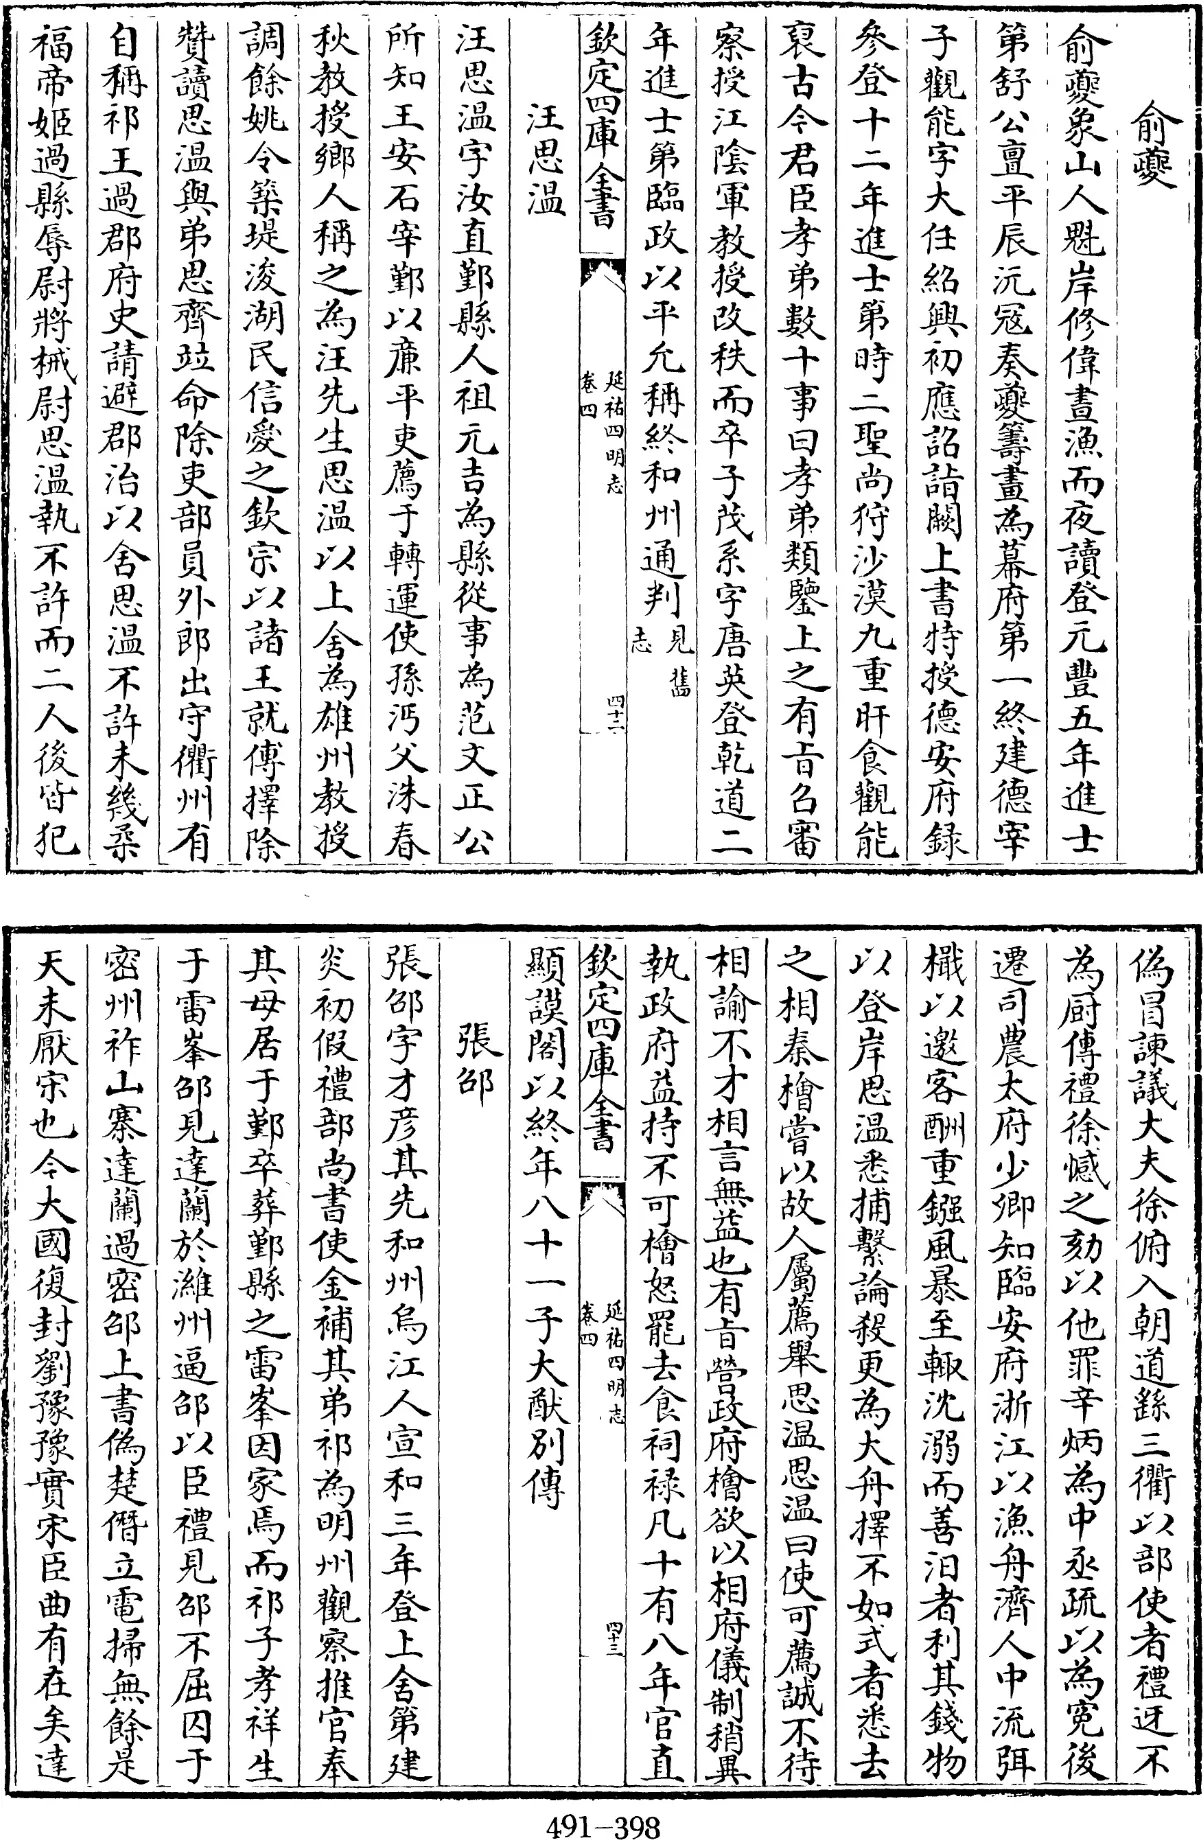 俞夔
俞夔象山人魁岸修偉晝漁而夜讀登元豐五年進士
第舒公亶平辰沅冦奏夔籌畫為幕府第一終建德宰
子觀能字大任紹興初應詔詣闕上書特授德安府録
參登十二年進士第時二聖尚狩沙漠九重旰食觀能
裒古今君臣孝弟數十事曰孝弟類鑒上之有㫖名審
察授江陰軍教授改秩而卒子茂系字唐英登乾道二
年進士第臨政以平允稱終和州通判見舊志
欽定四庫全書
延祐四明志
卷四
四十二
汪思溫
汪思溫字汝直鄞縣人祖元吉為縣從事為范文正公
所知王安石宰鄞以亷平吏薦于轉運使孫沔父洙春
秋教授鄉人稱之為汪先生思溫以上舍為雄州教授
調餘姚令築堤浚湖民信愛之欽宗以諸王就傅擇除
贊讀思溫與弟思齊竝命除吏部員外郎出守衢州有
自稱祁王過郡府史請避郡治以舍思溫不許未幾柔
福帝姬過縣辱尉將械尉思溫執不許而二人後皆犯
偽冒諫議大夫徐俯入朝道繇三衢以部使者禮迓不
為厨傳禮徐憾之劾以他罪辛炳為中丞疏以為寃後
遷司農太府少卿知臨安府浙江以漁舟濟人中流弭
檝以邀客酬重鏹風暴至輙沈溺而善汩者利其錢物
以登岸思溫悉捕繫論殺更為大舟擇不如式者悉去
之相秦檜嘗以故人屬薦舉思溫思溫曰使可薦誠不待
相諭不才相言無益也有㫖營政府檜欲以相府儀制稍異
執政府益持不可檜怒罷去食祠禄凡十有八年官直
欽定四庫全書
延祐四明志
卷四
四十三
顯謨閣以終年八十一子大猷別傳
張邵
張邵字才彦其先和州烏江人宣和三年登上舍第建
炎初假禮部尚書使金補其弟祁為明州觀察推官奉
其母居于鄞卒葬鄞縣之雷峯因家焉而祁子孝祥生
于雷峯邵見達蘭於濰州逼邵以臣禮見邵不屈囚于
密州祚山寨達蘭過密邵上書偽楚僭立電掃無餘是
天未厭宋也今大國復封劉豫豫實宋臣曲有在矣達
491-398